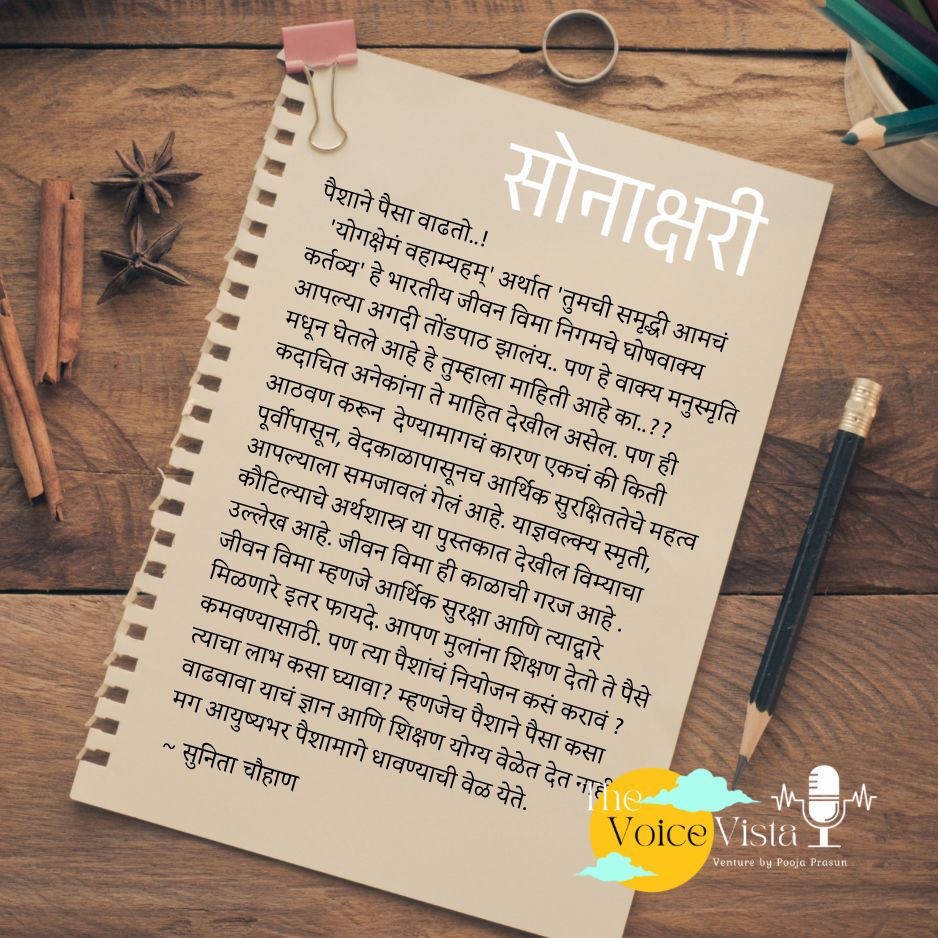 सोनाक्षरी
पैशाने पैसा वाढतो..!
'योगक्षेमं वहाम्यहम्' अर्थात 'तुमची समृद्धी आमचं
कर्तव्य' हे भारतीय जीवन विमा निगमचे घोषवाक्य
आपल्या अगदी तोंडपाठ झालंय.. पण हे वाक्य मनुस्मृति
मधून घेतले आहे हे तुम्हाला माहिती आहे का..??
कदाचित अनेकांना ते माहित देखील असेल. पण ही
आठवण करून देण्यामागचं कारण एकचं की किती
पूर्वीपासून, वेदकाळापासूनच आर्थिक सुरक्षिततेचे महत्व
आपल्याला समजावलं गेलं आहे. याज्ञवल्क्य स्मृती,
कौटिल्याचे अर्थशास्त्र या पुस्तकात देखील विम्याचा
उल्लेख आहे. जीवन विमा ही काळाची गरज आहे .
जीवन विमा म्हणजे आर्थिक सुरक्षा आणि त्याद्वारे
मिळणारे इतर फायदे. आपण मुलांना शिक्षण देतो ते पैसे
कमवण्यासाठी. पण त्या पैशांचं नियोजन कसं करावं ?
त्याचा लाभ कसा घ्यावा? म्हणजेच पैशाने पैसा कसा
वाढवावा याचं ज्ञान आणि शिक्षण योग्य वेळेत देत नाही
मग आयुष्यभर पैशामागे धावण्याची वेळ येते.
~ सुनिता चौहाण
The
Voice Vista
Venture by Pooja Prasun